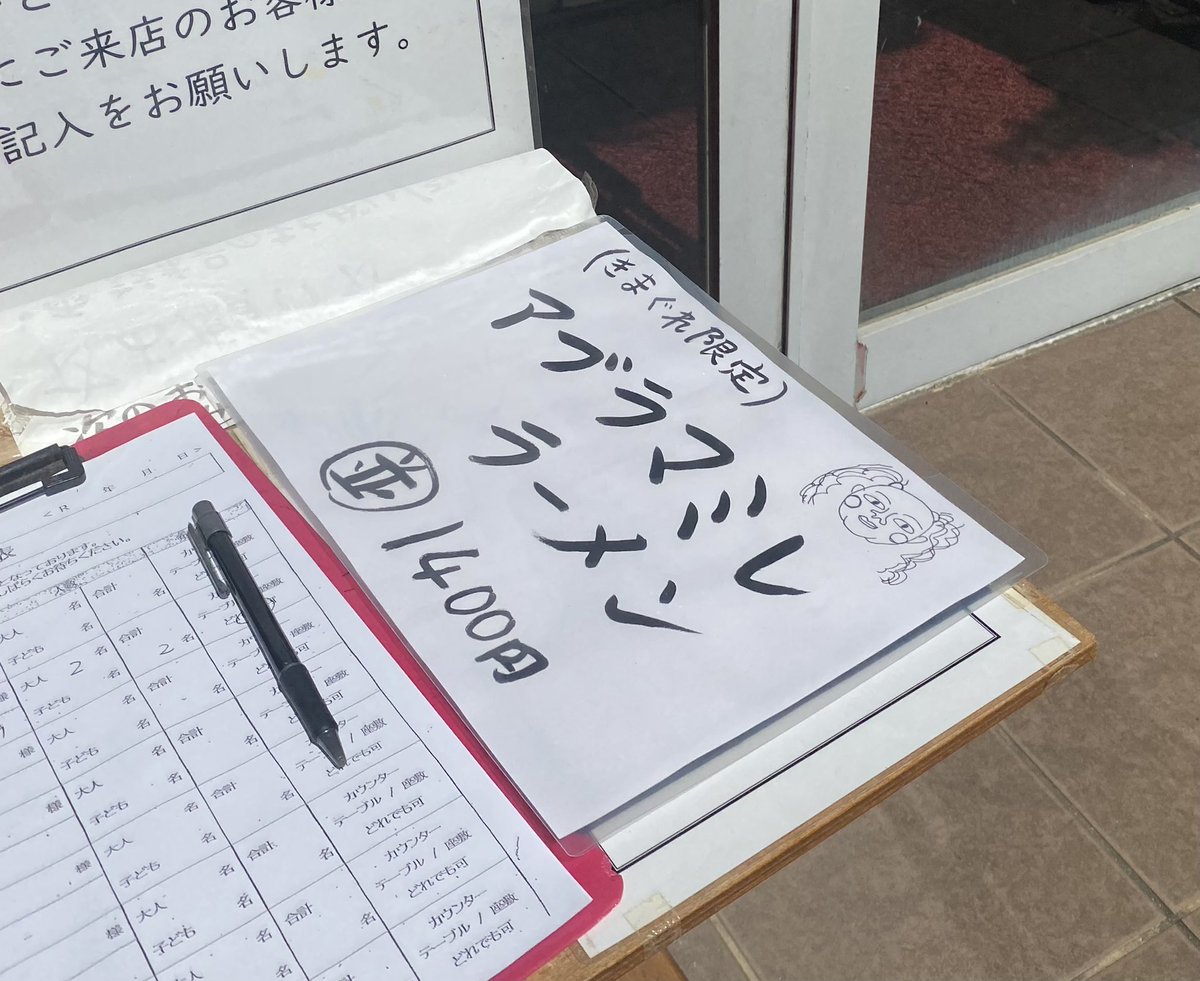 にご来店のお客様
記入をお願いします。
(きまぐれ限定)
アブラマミレ
ラーメン
並 1400円
次のお
<R 年 月 日>
表
なっております。
しばらくお待ちください。
人数
大人 名 合計 名 カウンター テーブル / 座敷
子ども 名 どれでも可
様 大人 2 名 合計 2 名 カウンター テーブル / 座敷
子ども 名 どれでも可
様 大人 名 合計 名 カウンター テーブル / 座敷
子ども 名 どれでも可
様 大人 名 合計 名 カウンター テーブル / 座敷
子ども 名 どれでも可
様 大人 名 合計 名 カウンター テーブル / 座敷
子ども 名 どれでも可
様 大人 名 合計 名 カウンター テーブル / 座敷
子ども 名 どれでも可
大人 名